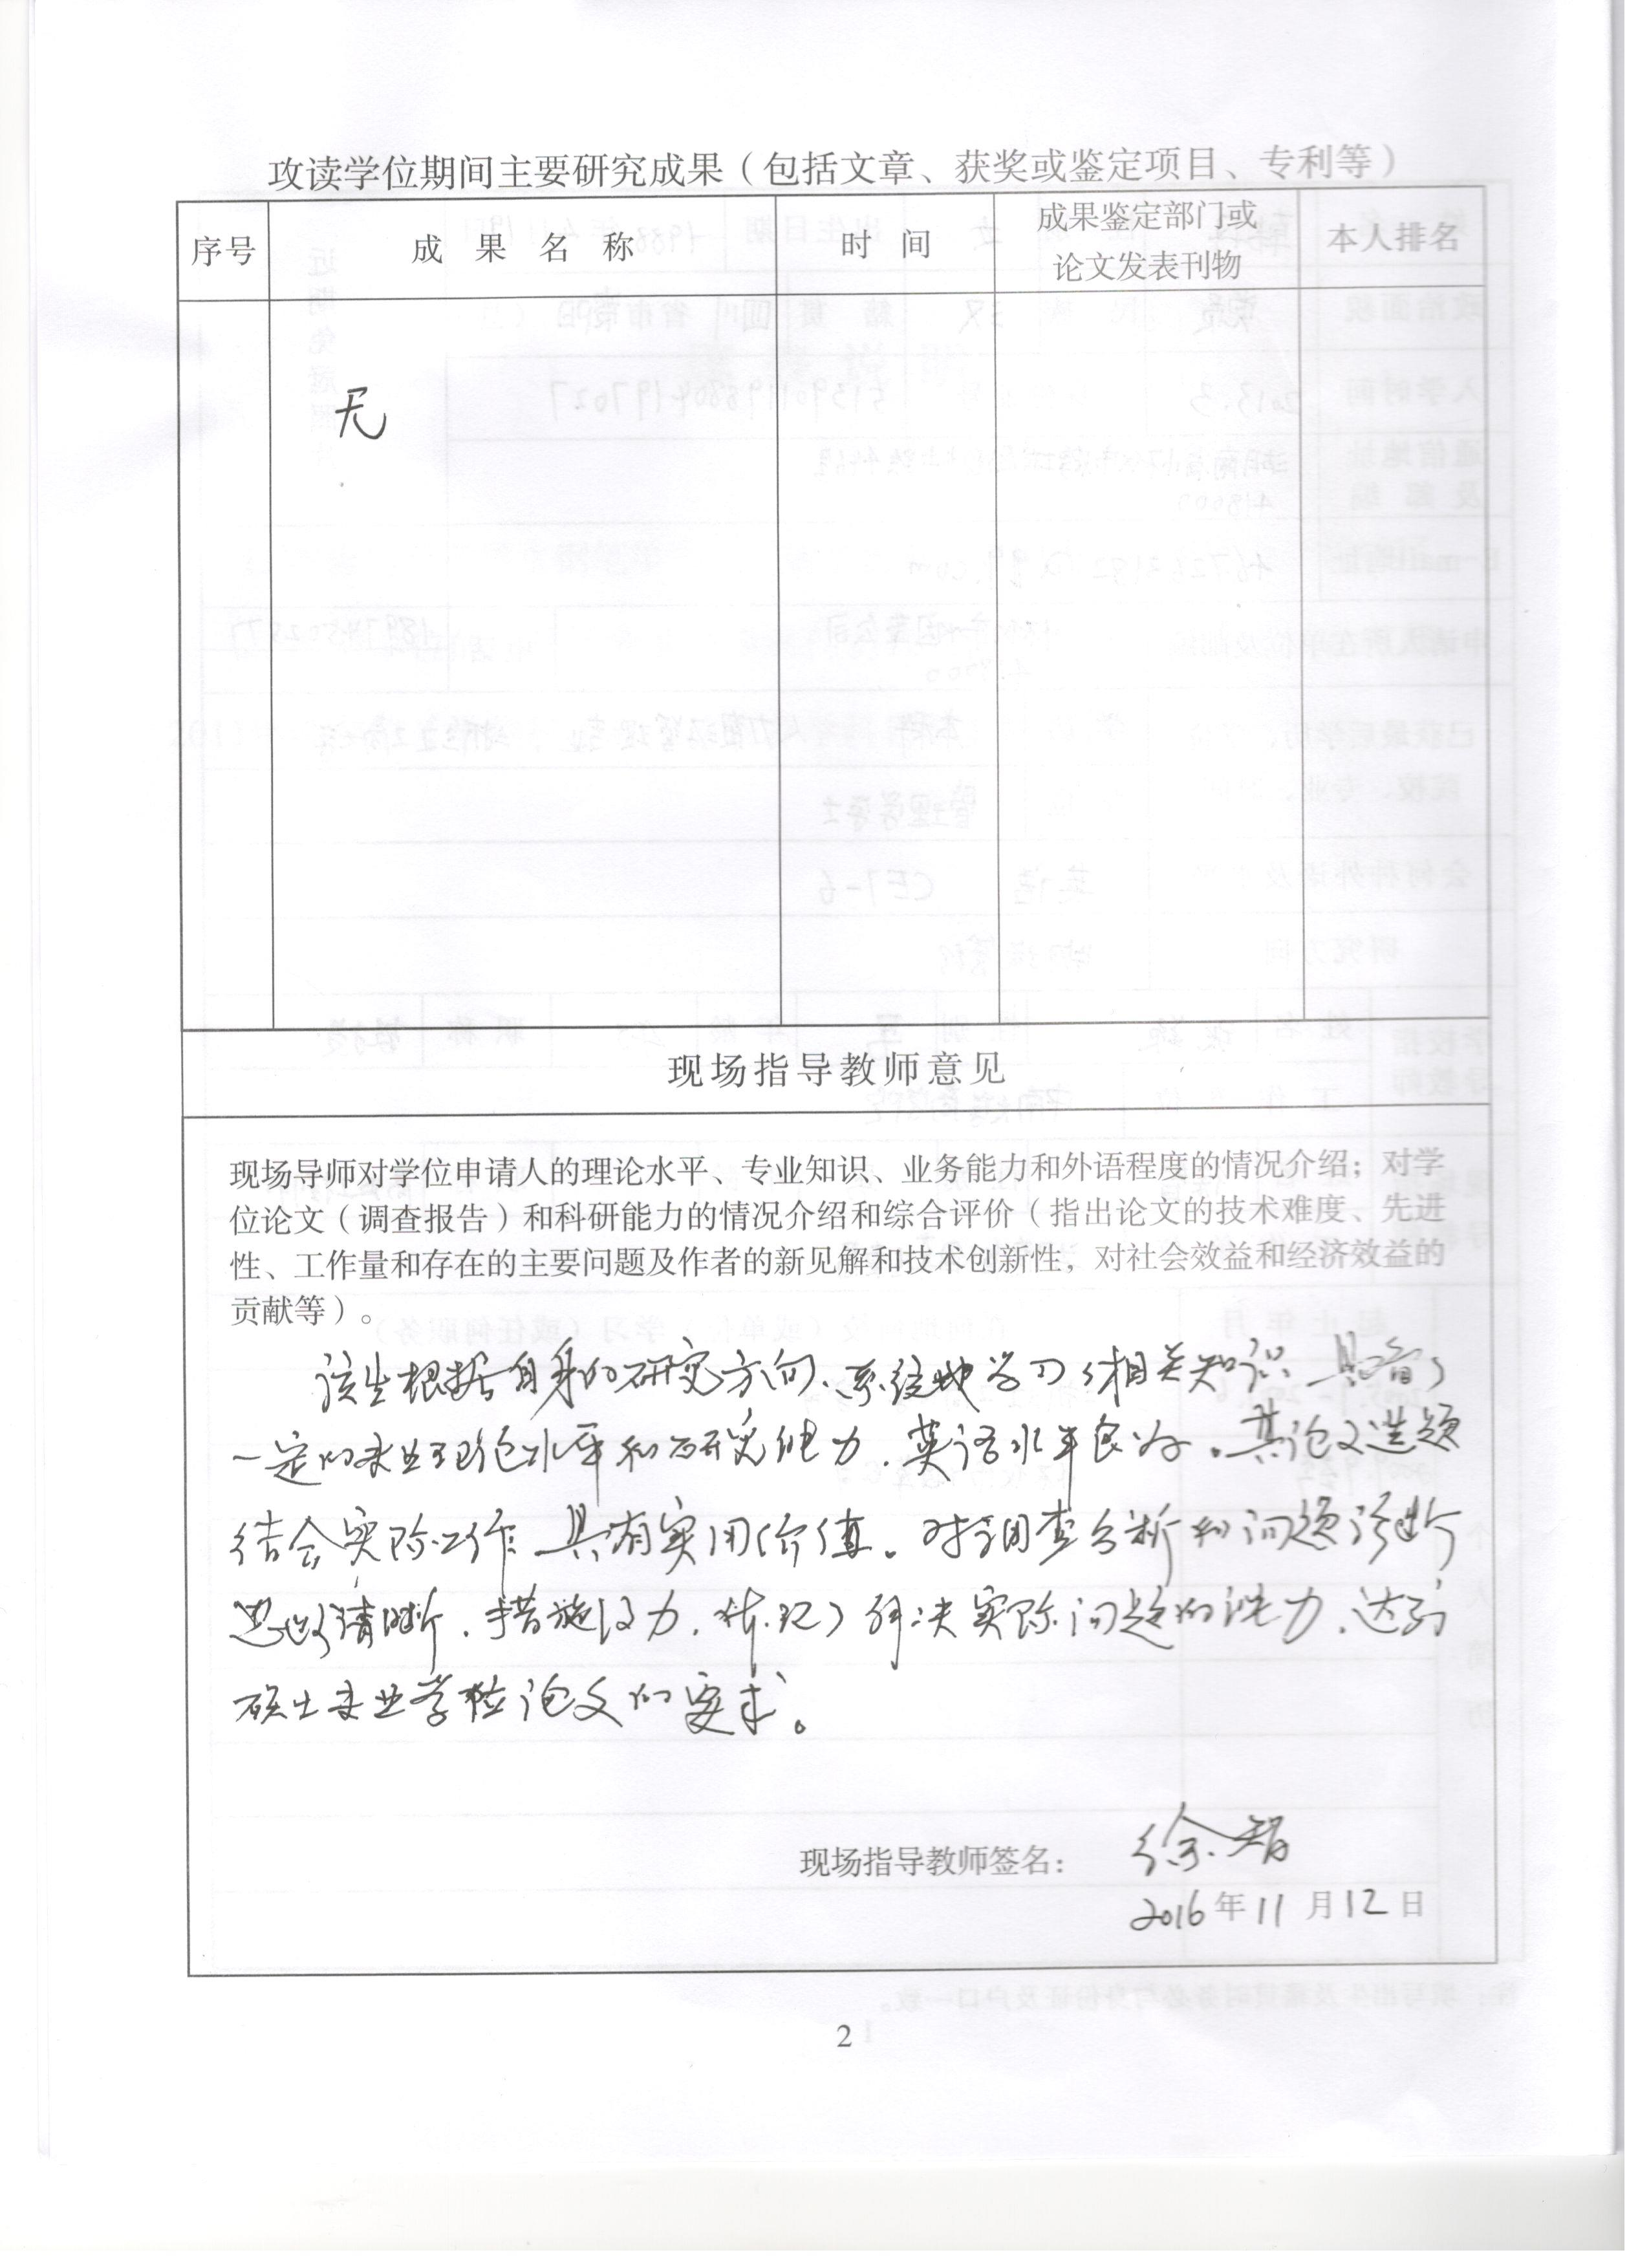 攻读学位期间主要研究成果（包括文章、获奖或鉴定项目、专利等）
序号 成果名称 时间 成果鉴定部门或论文发表刊物 本人排名
无
现场指导教师意见
现场导师对学位申请人的理论水平、专业知识、业务能力和外语程度的情况介绍；对学
位论文（调查报告）和科研能力的情况介绍和综合评价（指出论文的技术难度、先进
性、工作量和存在的主要问题及作者的新见解和技术创新性，对社会效益和经济效益的
贡献等）。
该生根据自身的研究方向、系统地学习了相关知识 具备了
一定的专业理论水平和研究能力，英语水平良好。其论文选题
结合实际工作 具有实用价值。对调查分析和问题诊断
思路清晰，措施得力，体现了解决实际问题的能力，达到
硕士专业学位论文的要求。
现场指导教师签名： 徐智
2016年11月12日
2